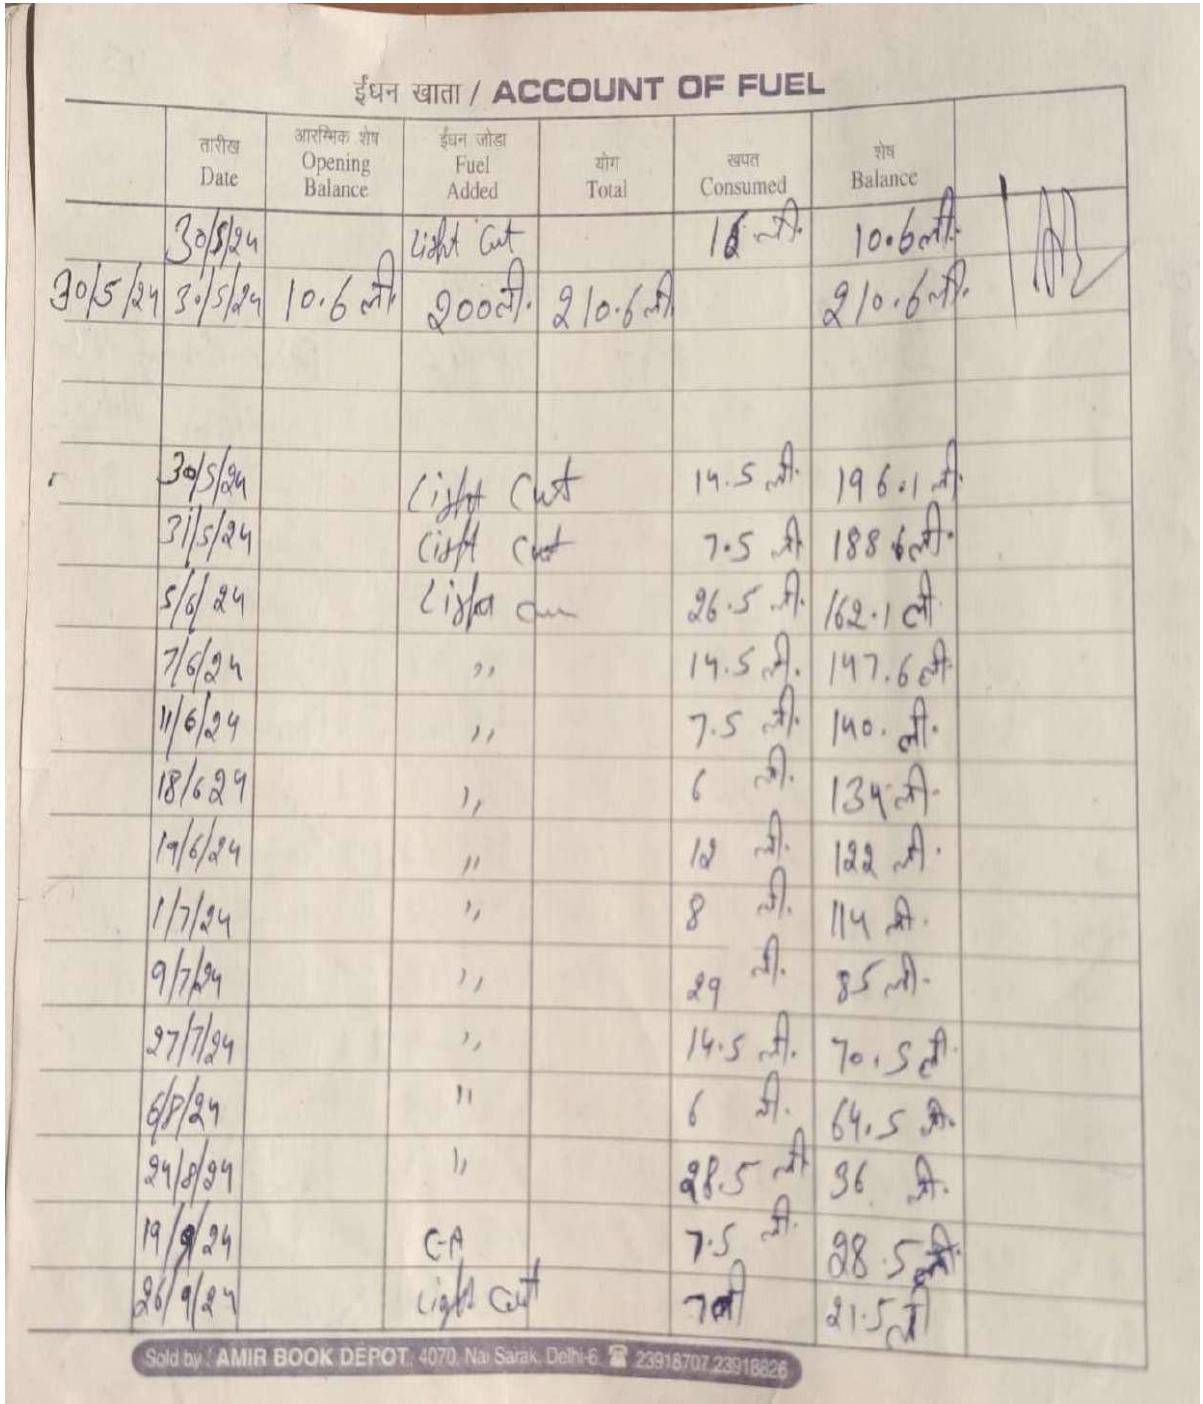 ईंधन खाता / ACCOUNT OF FUEL
तारीख Date आरम्भिक शेष Opening Balance ईंधन जोडा Fuel Added योग Total खपत Consumed शेष Balance
30/5/24 Light Cut ली. 10.6 ली.
30/5/24 30/5/24 10.6 ली. 200 ली. 210.6 ली. 210.6 ली.
30/5/24 Light Cut 14.5 ली. 196.1 ली.
31/5/24 Light Cut 7.5 ली 188.6 ली.
5/6/24 Light 26.5 ली. 162.1 ली
7/6/24 ,, 14.5 ली. 147.6 ली.
11/6/24 ,, 7.5 ली. 140. ली.
18/6 24 ,, 6 ली. 134 ली.
19/6/24 ,, 12 ली. 122 ली.
1/7/24 ,, 8 ली. 114 ली.
9/7/24 ,, 29 ली. 85 ली.
27/7/24 ,, 14.5 ली. 70.5 ली.
6/8/24 ,, 6 ली. 64.5 ली.
24/8/24 ,, 28.5 ली 36 ली.
19/9/24 C-A 7.5 ली. 28.5 ली.
26/9/24 Light Cut 7 ली 21.5 ली
Sold by : AMIR BOOK DEPOT, 4070, Nai Sarak, Delhi-6. ☎ 23918707, 23918826